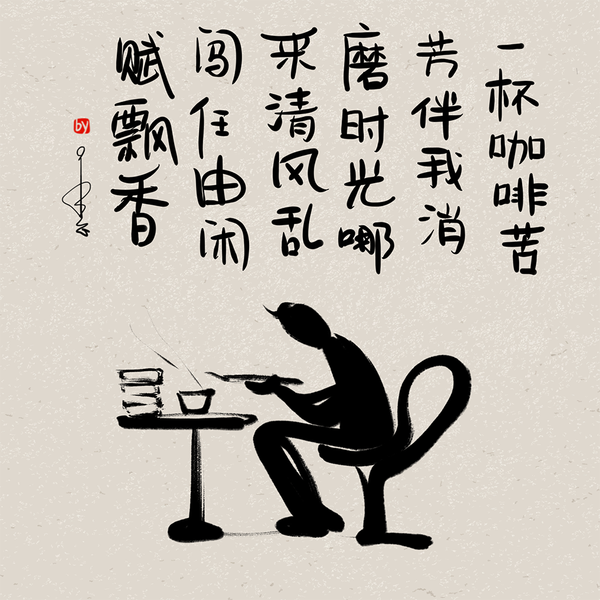 一杯咖啡苦
芳伴我消
磨时光哪
采清风乱
闯任由闲
赋飘香
by